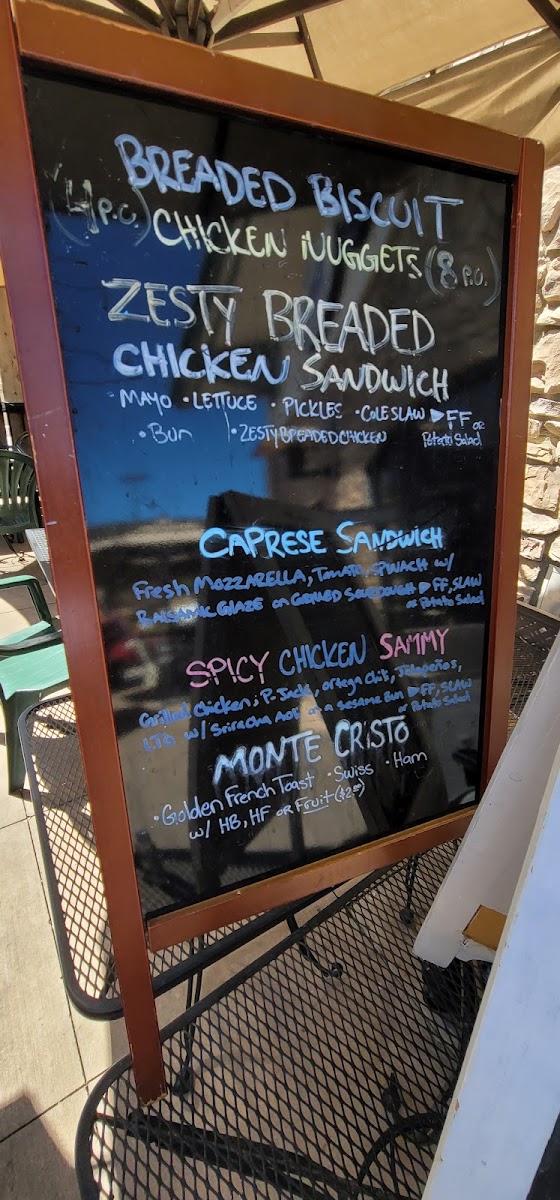 BREADED BISCUIT
(4 P.C.) CHICKEN NUGGETS (8 P.C.)
ZESTY BREADED
CHICKEN SANDWICH
MAYO • LETTUCE • PICKLES • COLESLAW ▷ FF OR
• Bun • ZESTY BREADED CHICKEN Potato Salad
CAPRESE SANDWICH
Fresh MOZZARELLA, TOMATO, SPINACH w/
BALSAMIC GLAZE on GRILLED SOURDOUGH ▷ FF, SLAW
or Potato Salad
SPICY CHICKEN SAMMY
Grilled Chicken, P. Jack, ortega chili, Jalapeños,
LTO w/ Sriracha Aoli on a Sesame Bun ▷ FF, SLAW
or Potato Salad
MONTE CRISTO
• Golden French Toast • Swiss • Ham
w/ HB, HF OR Fruit ($2.00)